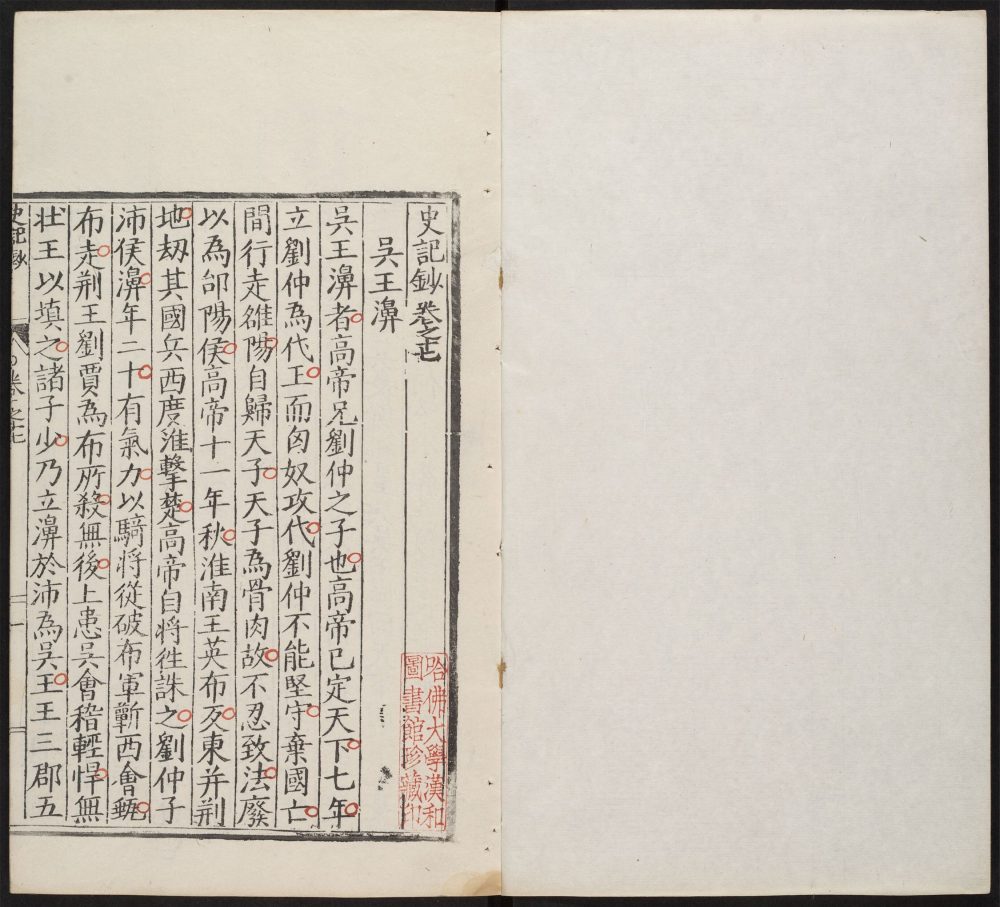 史記鈔卷之七
哈佛大學漢和
圖書館珍藏印
吳王濞
吳王濞者高帝兄劉仲之子也高帝已定天下七年
立劉仲為代王而匈奴攻代劉仲不能堅守棄國亡
間行走雒陽自歸天子天子為骨肉故不忍致法廢
以為郃陽侯高帝十一年秋淮南王英布反東并荆
地刼其國兵西度淮擊楚高帝自將徃誅之劉仲子
沛侯濞年二十有氣力以騎將從破布軍蘄西會甀
布走荆王劉賈為布所殺無後上患吳會稽輕悍無
壮王以填之諸子少乃立濞於沛為吳王王三郡五
史記鈔 卷之七 一